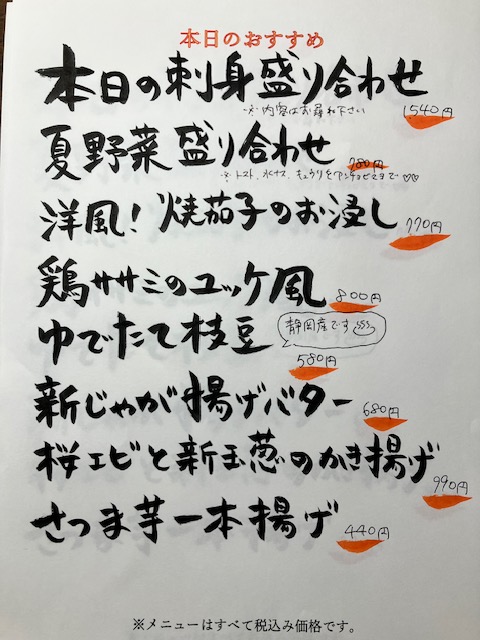 本日のおすすめ
本日の刺身盛り合わせ
※内容はお尋ね下さい
1540円
夏野菜盛り合わせ
780円
※トマト、水ナス、キュウリをアンチョビマヨで♡♡
洋風!焼茄子のお浸し
770円
鶏ササミのユッケ風
800円
ゆでたて枝豆
静岡産です
580円
新じゃが揚げバター
680円
桜エビと新玉葱のかき揚げ
990円
さつま芋一本揚げ
440円
※メニューはすべて税込み価格です。